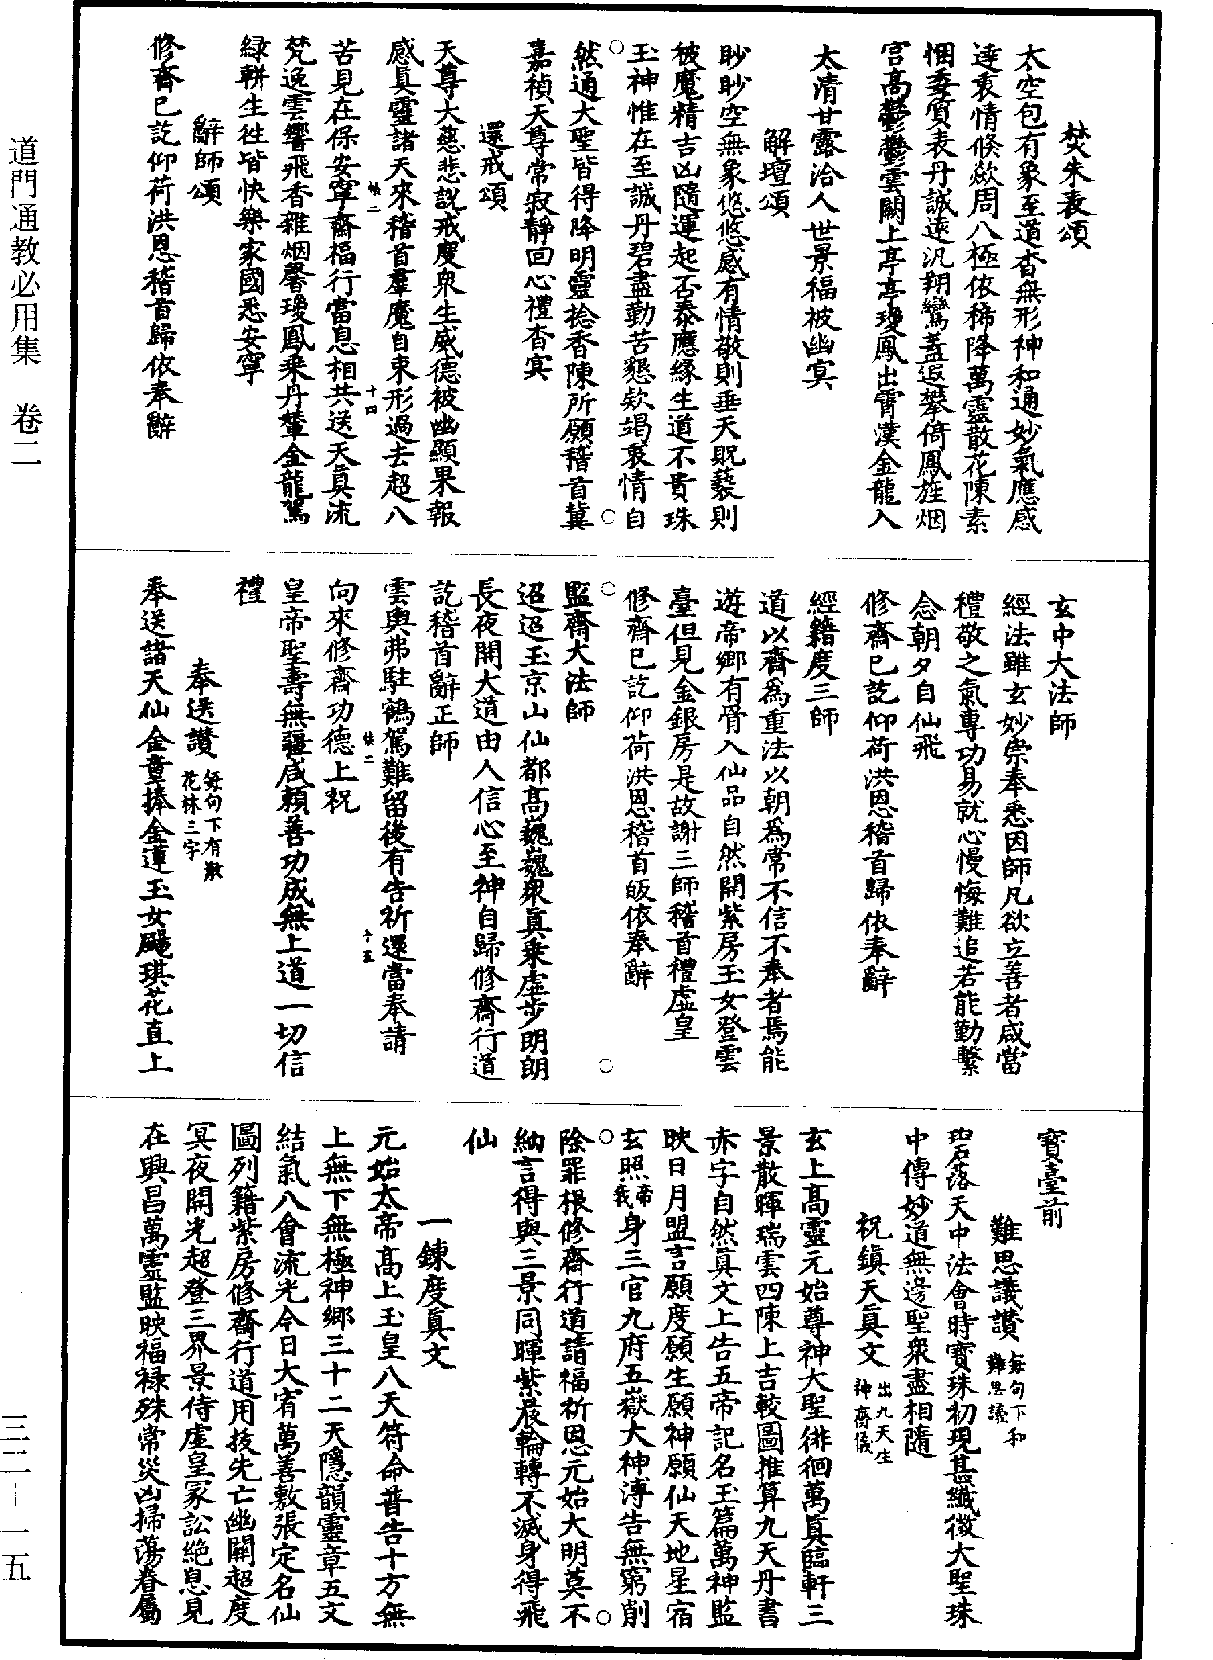 道門通教必用集　卷二
三二—一五
焚朱表頌
太空包有象至道杳無形神和通妙氣應感
達表情倏歘周八極依稀降萬靈散花陳素
悃委質表丹誠遠汎翔鸞蓋返攀倚鳳旌烟
宫高鬱鬱雲闕上亭亭瓊鳳出霄漢金龍入
太清甘露洽人世景福被幽冥
解壇頌
眇眇空無象悠悠感有情敬則垂天貺褻則
被魔精吉凶隨運起否泰應緣生道不貴珠
玉神惟在至誠丹碧盡勤苦懇欵竭衷情自
然通大聖皆得降明靈捻香陳所願稽首冀
嘉禎天尊常寂靜回心禮杳冥
還戒頌
天尊大慈悲說戒度衆生威德被幽顯果報
感真靈諸天來稽首羣魔自束形過去超八
苦見在保安寧齋福行當息相共送天真流
梵逸雲響飛香雜烟馨瓊鳳乘丹輦金龍駕
緑軿生徃皆快樂家國悉安寧
辭師頌
修齋已訖仰荷洪恩稽首歸依奉辭
玄中大法師
經法雖玄妙崇奉悉因師凡欲立善者咸當
禮敬之氣專功易就心慢悔難追若能勤繫
念朝夕自仙飛
修齋已訖仰荷洪恩稽首歸依奉辭
經籍度三師
道以齋爲重法以朝爲常不信不奉者焉能
遊帝鄉有骨入仙品自然開紫房玉女登雲
臺但見金銀房是故謝三師稽首禮虛皇
修齋已訖仰荷洪恩稽首皈依奉辭
監齋大法師
迢迢玉京山仙都髙巍巍衆真乘虛步朗朗
長夜開大道由人信心至神自歸修齋行道
訖稽首辭正師
雲輿弗駐鶴駕難留後有告祈還當奉請
向來修齋功德上祝
皇帝聖壽無疆咸賴善功成無上道一切信
禮
奉送讚 每句下有散花林三字
奉送諸天仙金童捧金蓮玉女颺琪花直上
寶臺前
難思議讚 每句下和難思議
碧落天中法會時寶珠初現甚纖微大聖珠
中傳妙道無邊聖衆盡相隨
祝鎮天真文 出九天生神齋儀
玄上高靈元始尊神大聖徘徊萬真臨軒三
景散暉瑞雲四陳上吉較圖推算九天丹書
赤字自然真文上告五帝記名玉篇萬神監
映日月盟言願度願生願神願仙天地星宿
玄照帝我身三官九府五嶽大神溥告無窮削
除罪根修齋行道請福祈恩元始大明莫不
納言得與三景同暉紫晨輪轉不滅身得飛
仙
一鍊度真文
元始太帝高上玉皇八天符命普告十方無
上無下無極神鄉三十二天隱韻靈章五文
結氣八會流光今日大宥萬善敷張定名仙
圖列籍紫房修齋行道用拔先亡幽關超度
冥夜開光超登三界景侍虛皇冢訟絶息見
在興昌萬靈監映福禄殊常災凶掃蕩眷屬